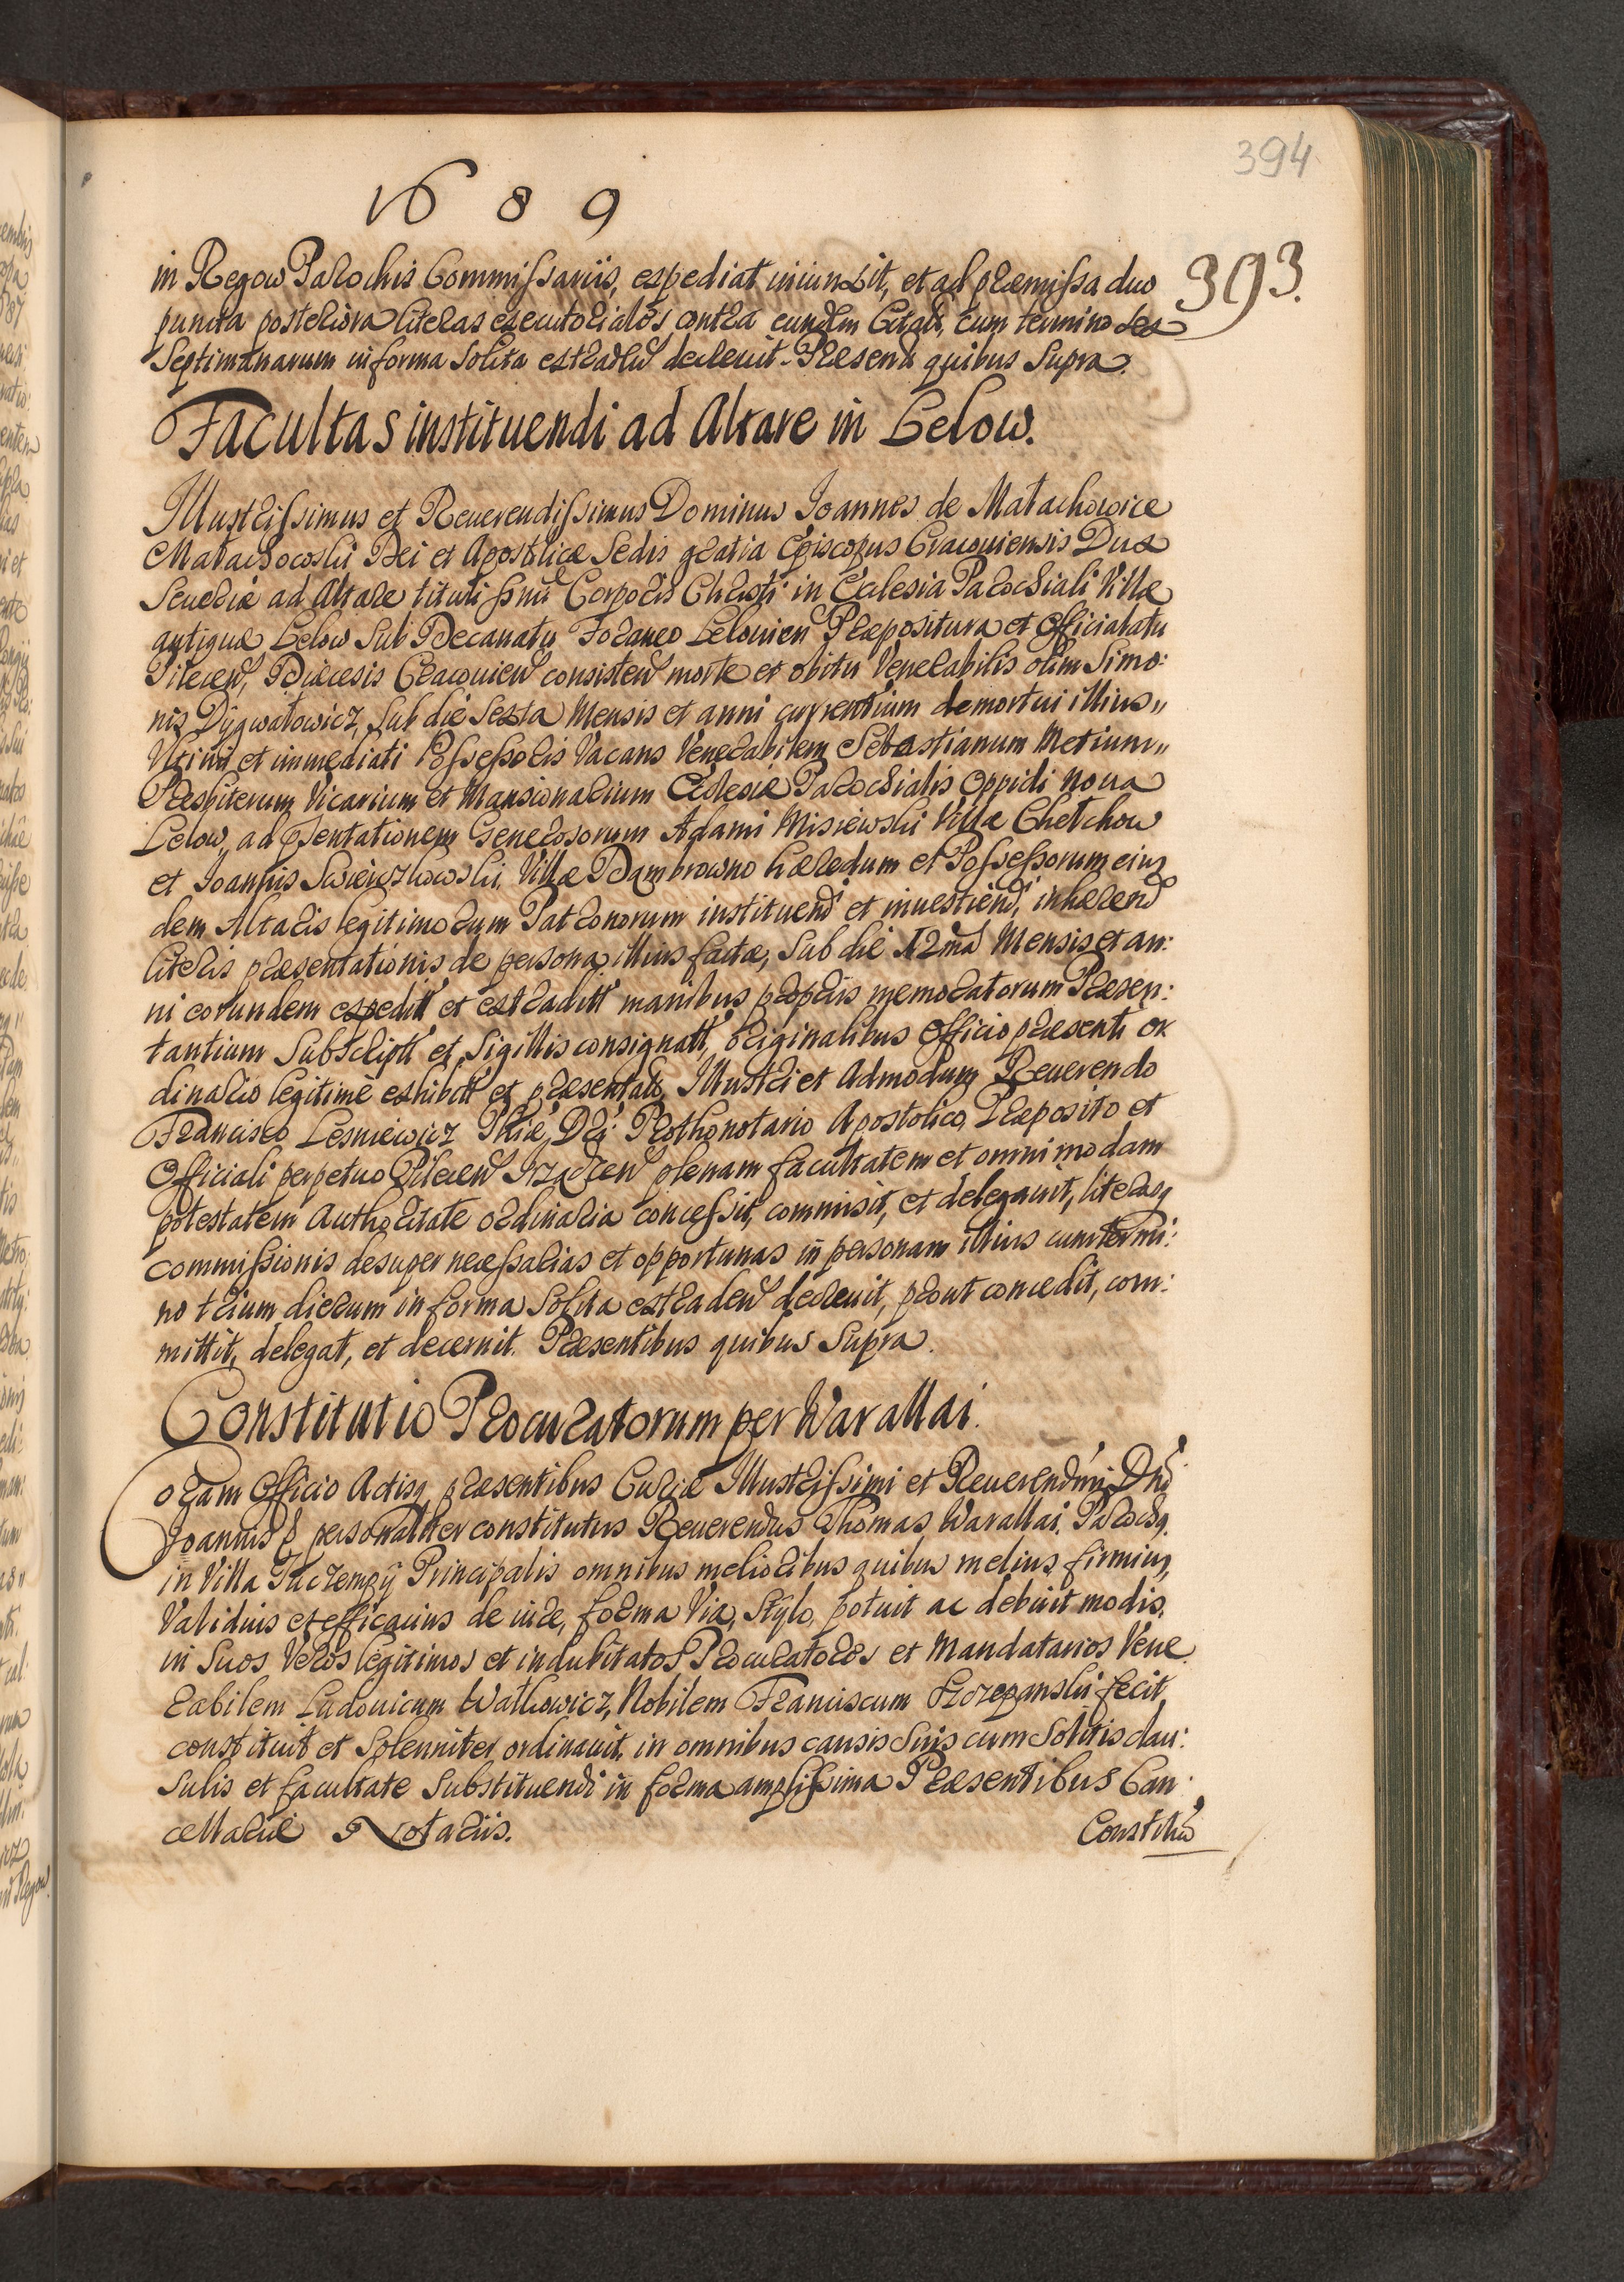 394
1689
393.
in Regow Parochis Commissariis, expediat iniunxit, et ad præmissa duo
puncta posteriora literas executoriales contra eundem Citatũ, cum termino sex
Septimanarum in forma solita extraden̄ decrevit. Præsent̃ quibus Supra.
Facultas instituendi ad Altare in Lelow.
Illustrissimus et Reverendissimus Dominus Ioannes de Małachowice
Małachowski Dei et Apostolicæ Sedis gratia Episcopus Cracoviensis Dux
Severiæ ad Altare tituli Corporis Christi in Ecclesia Parochiali Villæ
antiquæ Lelow sub Decanatu Foraneo Lelovien̄ Præpositura et Officialatu
Pilecen̄, Diæcesis Cracovien̄ consisten̄ morte et obitu Venerabilis olim Simo:
nis Dygwałowicz, sub die Sexta Mensis et anni currentium demortui illius"
Ultimi et immediati Possessoris vacans Venerabilem Sebastianum Metium"
Præsbiterum Vicarium et Mansionarium Ecclesiæ Parochialis Oppidi Nova
Lelow, ad pñtationem Generosorum Adami Misiewski Villæ Chełchow
et Ioannis Villæ Dambrowno hæredum et Possessorum eius
dem Altaris legitimorum Patronorum instituendi et investiendi, inhæren̄
literis præsentationis de persona illius factæ, sub die 12ma Mensis et an:
ni eorundem expeditt̃ et extraditt̃ manibus propriis memoratorum Præsen:
tantium Subscriptt̃ et Sigillis consignatt̃ originalibus Officio præsenti or
dinario legitimè exhibitt̃ et præsentatt̃, Illustri et Admodum Reverendo
Francisco Lesniewicz Phiæ Dri Prothonotario Apostolico, Præposito et
Officiali perpetuo Pilecen̄ plenam facultatem et omnimodam
potestatem Authoritate ordinaria concessit, commisit, et delegavit, literasq
commissionis desuper necessarias et opportunas in personam illius cum termi:
no trium dierum in forma solita extraden̄ decrevit, prout concedit, com:
mittit, delegat, et decernit. Præsentibus quibus Supra.
Constitutio Procuratorum per Warallai.
Coram Officio Actisq præsentibus Curiæ Illustrissimi et Reverendm̃i Dñi
Ioannis personaliter constitutus Reverendus Thomas Warallai Parochq
in Villa Principalis omnibus melioribus quibus melius, firmius,
Validius et efficacius de iure, forma Via, Stylo, potuit ac debuit modis,
in Suos veros legitimos et indubitatos Procuratores et Mandatarios Vene
rabilem Ludovicum Watkowicz, Nobilem Franciscum Szczepanski fecit,
constituit et solenniter ordinavit, in omnibus causis Suis cum solitis clau:
sulis et facultate substituendi in forma amplissima Præsentibus Can:
cellariæ Notariis.
Constitũ